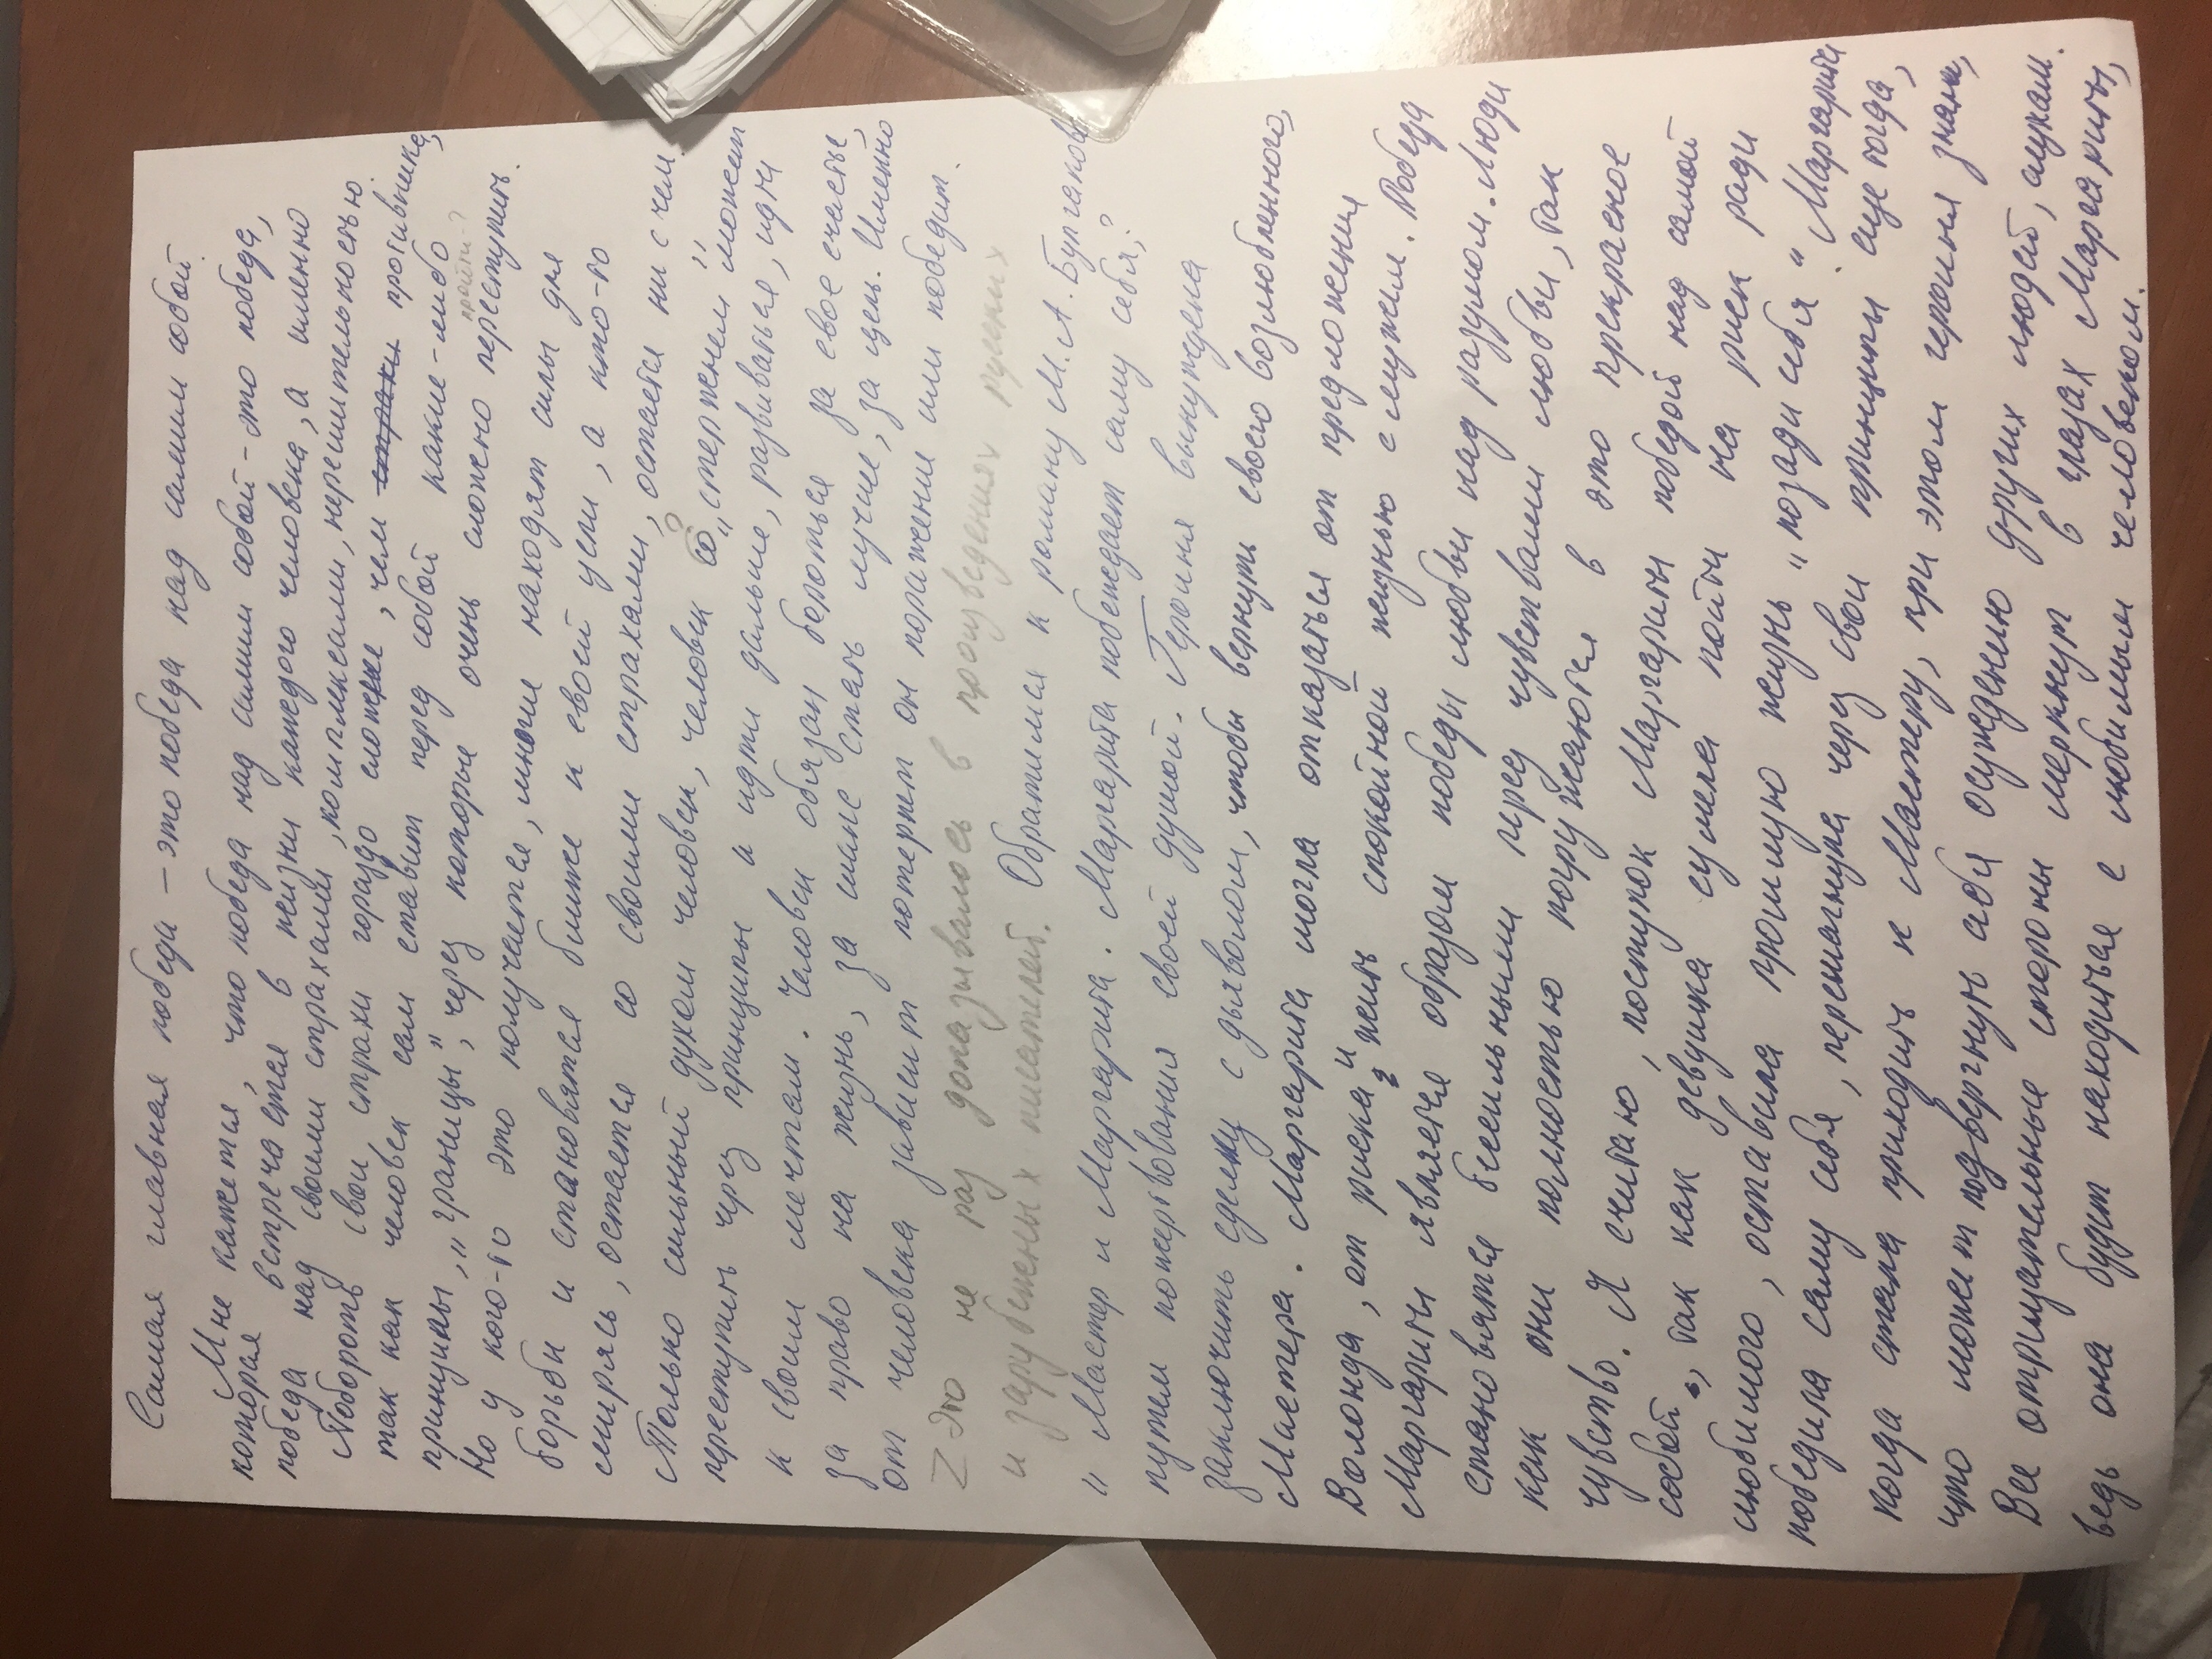 Самая главная победа – это победа над самим собой.
Мне кажется, что победа над самим собой – это победа,
которая встречается в жизни каждого человека, а именно
победа над своими страхами, комплексами, нерешительностью.
Побороть свои страхи гораздо сложнее, чем страхи противника,
так как человек сам ставит перед собой какие-либо
пройти?
принципы, „границы", через которые очень сложно переступить.
Но у кого-то это получается, многие находят силы для
борьбы и становятся ближе к своей цели, а кто-то
смирясь, остается со своими страхами, остается ни с чем.
Только сильный духом человек, человек со „стержнем" может
переступить через принципы и идти дальше, развиваться, идти
к своим мечтам. Человек обязан бороться за свое счастье,
за право на жизнь, за шанс стать лучше, за цель. Именно
от человека зависит потерпит он поражение или победит.
Z Это не раз доказывалось в произведениях русских
и зарубежных писателей. Обратимся к роману М.А. Булгакова
„Мастер и Маргарита. Маргарита побеждает саму себя,?
путем пожертвования своей душой. Героиня вынуждена
заключить сделку с дьяволом, чтобы вернуть своего возлюбленного,
Мастера. Маргарита могла отказаться от предложения
Воланда, от риска и жить спокойной жизнью с мужем. Победа
Маргариты является образом победы любви над разумом. Люди
становятся бессильными перед чувствами любви, так
как они полностью погружаются в это прекрасное
чувство. Я считаю, поступок Маргариты победой над самой
собой", так как девушка сумела пойти на риск ради
любимого, оставила прошлую жизнь „позади себя". Маргарита
победила саму себя, перешагнула через свои принципы еще тогда,
когда стала приходить к Мастеру, при этом героиня знала,
что может подвергнуть себя осуждению других людей, слухам.
Все отрицательные стороны меркнут в глазах Маргариты,
ведь она будет находиться с любимым человеком.